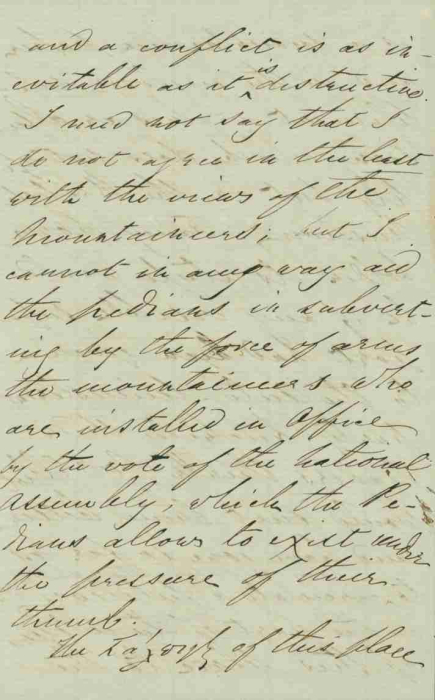 and a conflict is as in-
evitable as it is destructive.
I need not say that I
do not agree in the least
with the views of the
mountaineers; but I
cannot in any way aid
the pedians in subvert-
ing by the force of arms
the mountaineers who
are installed in office
by the vote of the national
assembly, which the Pe-
dians allows to exist under
the pressure of their
thumb.
The of this place